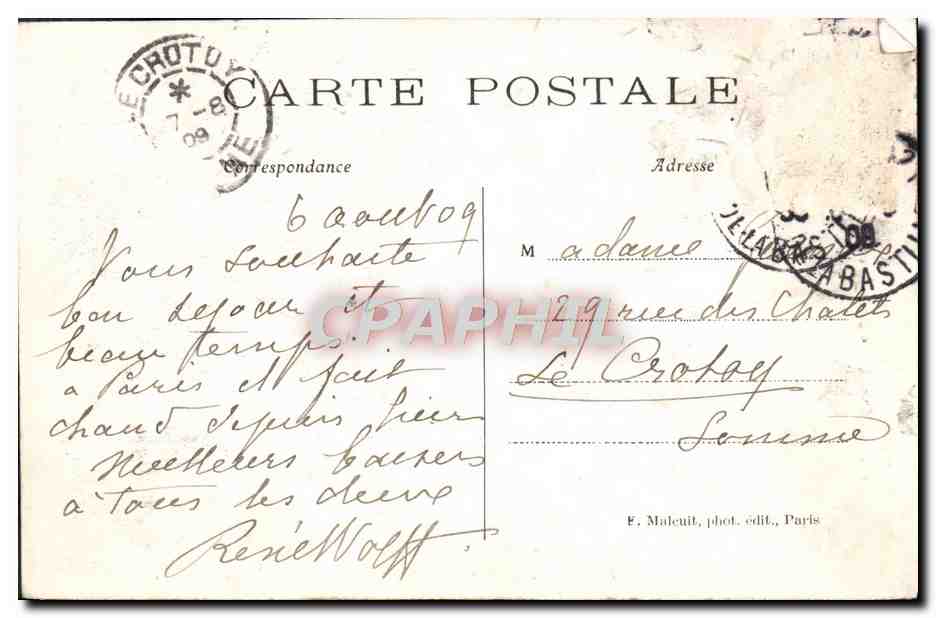 LE CROTOY
* 7 -8 09
ME
CARTE POSTALE
Correspondance
Adresse
6 aout 09
Vous souhaite
bon séjour et
beau temps.
a Paris il fait
chaud depuis hier
Meilleurs baisers
à tous les deux
René Wolff
Madame
29 rue des Chalets
Le Crotoy
Somme
DE LA BASTI
09
CPAPHIL
F. Maleuit, phot. édit., Paris